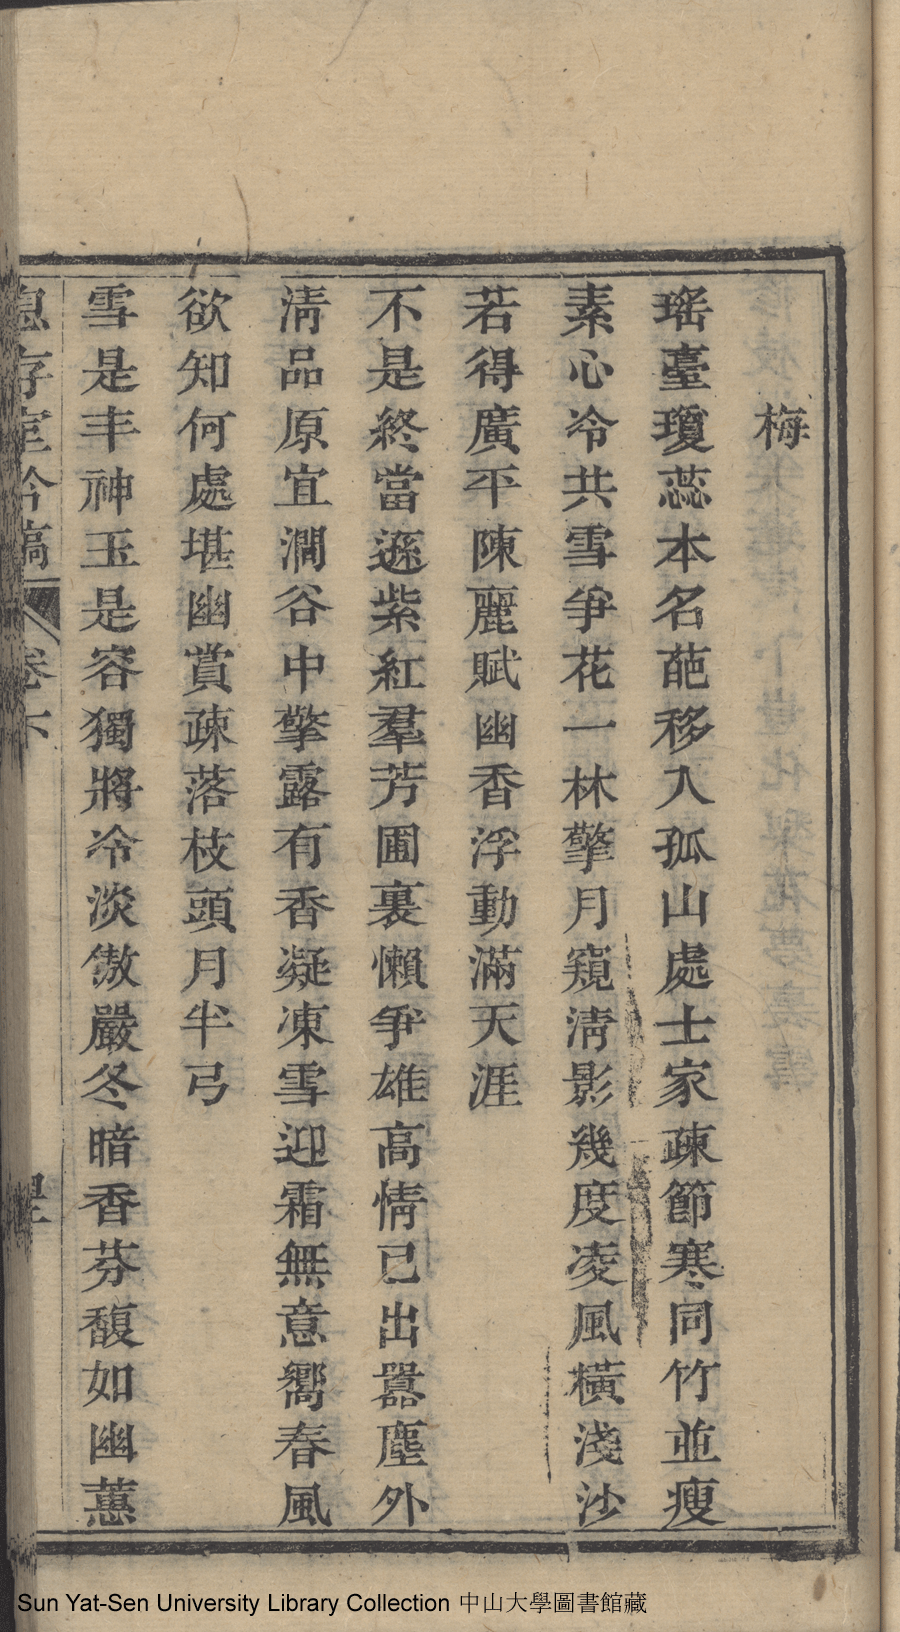 梅
瑤臺瓊蕊本名葩移入孤山處士家疎節寒同竹並瘦
素心冷共雪爭花一林擎月窺清影幾度凌風橫淺沙
若得廣平陳麗賦幽香浮動滿天涯
不是終當遜紫紅羣芳圃裏懶爭雄高情已出囂塵外
清品原宜澗谷中擎露有香凝凍雪迎霜無意嚮春風
欲知何處堪幽賞疎落枝頭月半弓
雪是丰神玉是容獨將冷淡傲嚴冬暗香芬馥如幽蕙
存室吟稿 卷下
Sun Yat-Sen University Library Collection 中山大學圖書館藏